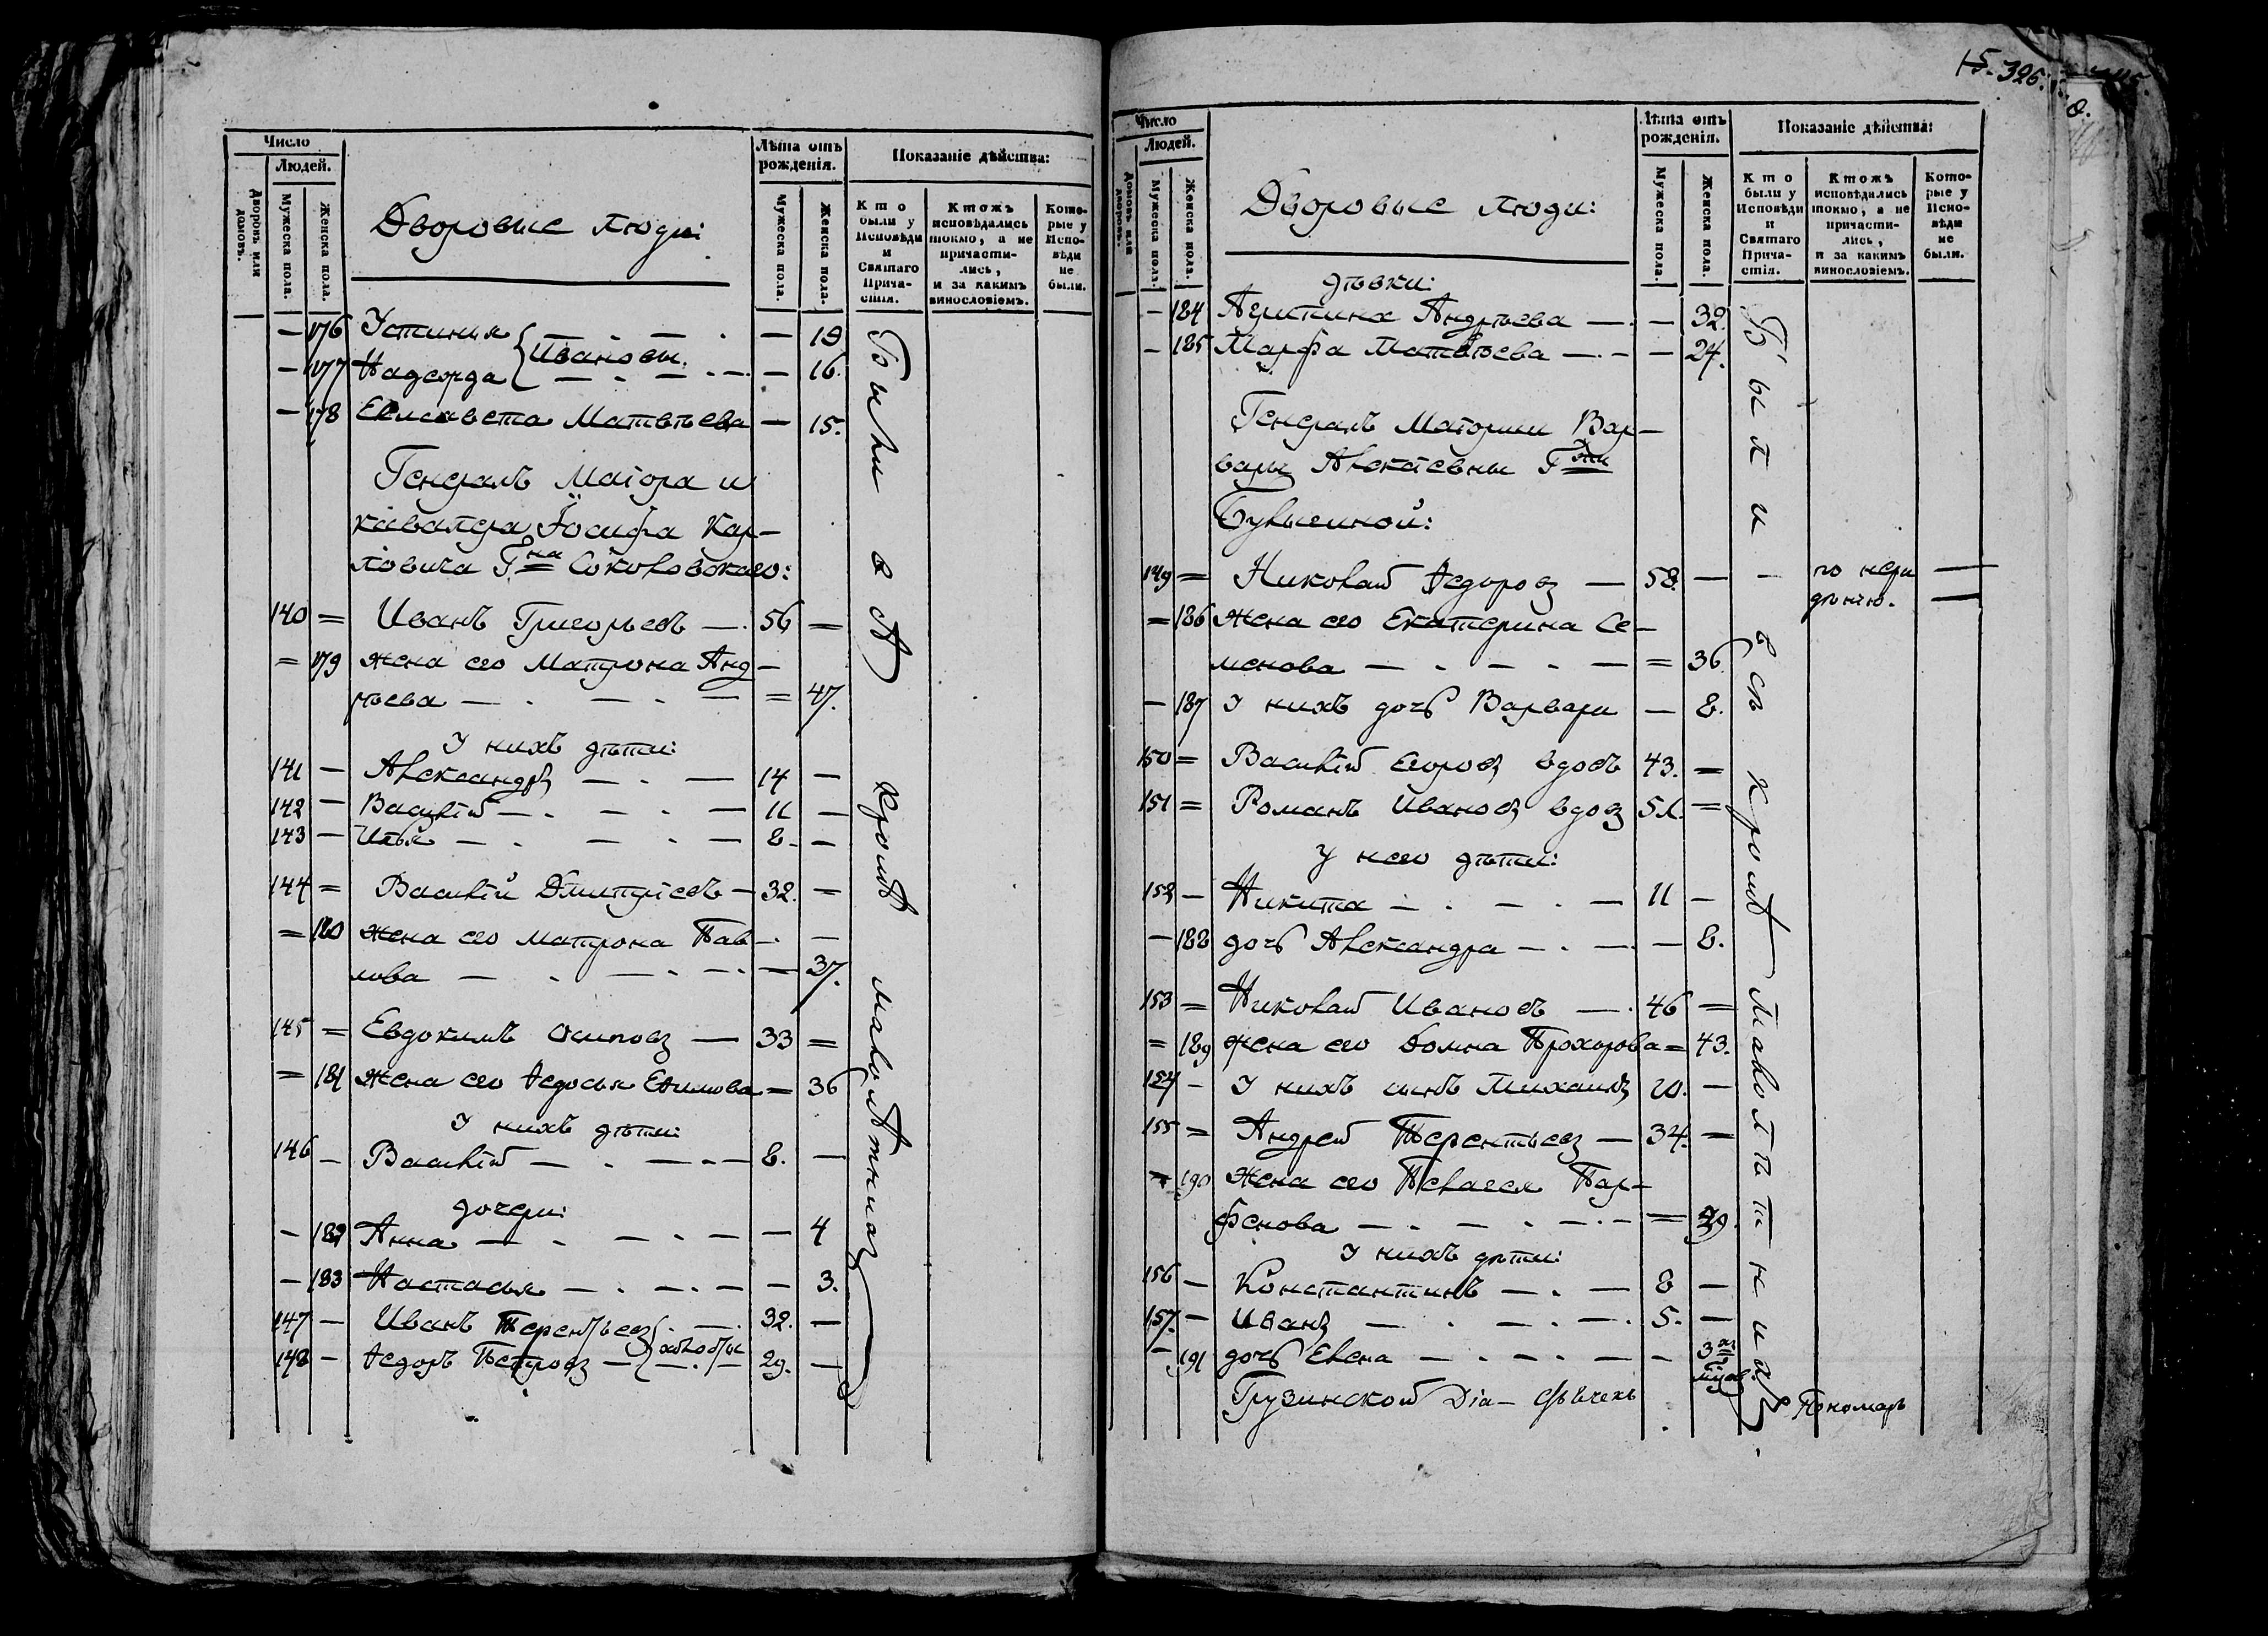 Число
Людей.
Дворовъ или домовъ.
Мужеска пола.
Женска пола.
Дворовые люди:
Лѣта отъ рожденія.
Мужеска пола.
Женска пола.
Показаніе дѣйства:
Кто были у Исповѣди и Святаго Прича-стія.
Ктожъ исповѣдались токмо, а не причасти-лись, и за какимъ винословіемъ.
Кото-рые у Испо-вѣди не были.
— 176 Устинья — 19
Ивановы
— 177 Надежда — 16.
— 178 Елисавета Матвѣева — 15.
Генералъ Маіора и
кавалера Іосифа Кар-
ловича Гна Соколовскаго:
140 = Иванъ Григорьевъ — 56 =
= 179 жена его Матрона Анд-
рѣева — = 47.
У нихъ дѣти:
141 — Александръ — 14 —
142 — Василій — 11 —
143 — Илья — 8. —
144 = Василій Дмитріевъ — 32. =
= 180 жена его Матрона Пав-
лова — 37.
145 = Евдокимъ Осиповъ — 33 =
= 181 жена его Ѳедосья Ефимова = 36
У нихъ дѣти:
146 — Василій — 8. —
дочери:
— 182 Анна — 4
— 183 Настасья — 3.
147 — Иванъ Терентьевъ 32. —
холостые
148 — Ѳедоръ Петровъ — 29. —
Были всѣ кромѣ малолѣтнихъ
15. 326.
Число
Людей.
Домовъ или дворовъ.
Мужеска пола.
Женска пола.
Дворовые люди:
Лѣта отъ рожденія.
Мужеска пола.
Женска пола.
Показаніе дѣйства:
Кто были у Исповѣди и Святаго Прича-стія.
Ктожъ исповѣдались токмо, а не причасти-лись, и за какимъ винословіемъ.
Кото-рые у Испо-вѣди не были.
дѣвки:
— 184 Агрипина Андрѣева — 32.
— 185 Марфа Матвѣева — 24.
Генералъ Маіорши Вар-
вары Алексіевны Гжи
149 = Николай Ѳедоровъ — 58. — по нера
дѣнію.
= 186 жена его Екатерина Се-
менова — = 36.
— 187 У нихъ дочь Варвара — 8.
150 = Василій Егоровъ вдовъ 43. =
151 = Романъ Ивановъ вдовъ 51. =
У него дѣти:
152 — Никита — 11 —
— 188 дочь Александра — 8.
153 = Николай Ивановъ — 46 =
= 189 жена его Домна Прохорова = 43.
154 — У нихъ сынъ Михаилъ 20. —
155 = Андрей Терентьевъ — 34. =
= 190 жена его Пелагея Пар-
фенова — =
У нихъ дѣти:
156 — Константинъ — 8 —
157. — Иванъ — 5. —
— 191 дочь Елена — 3
Были всѣ кромѣ малолѣтнихъ.
Грузинской Пономарь